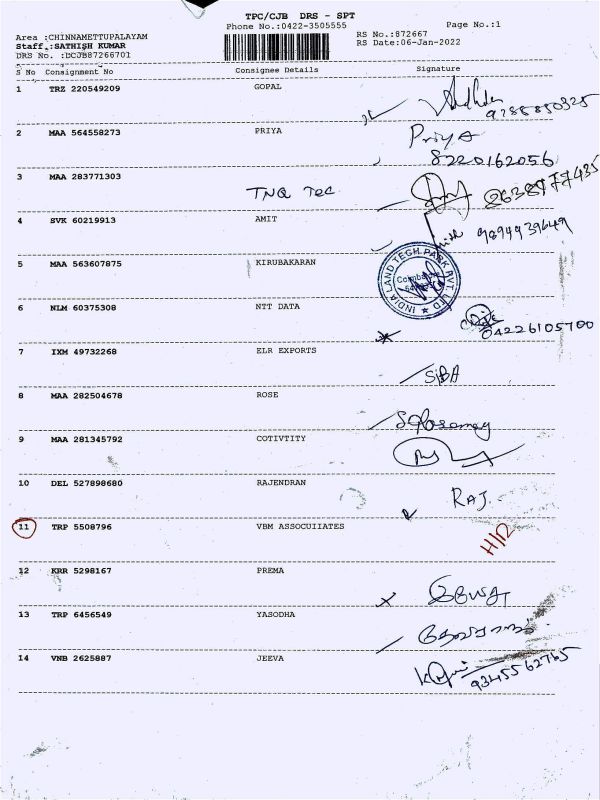 TPC/CJB DRS - SPT
Phone No.:0422-3505555
Page No.:1
Area :CHINNAMETTUPALAYAM
Staff :SATHISH KUMAR
DRS No. :DCJB87266701
RS No.:872667
RS Date:06-Jan-2022
S No Consignment No Consignee Details Signature
1 TRZ 220549209 GOPAL
9788850325
2 MAA 564558273 PRIYA Priya
8220162056
3 MAA 283771303 TNQ Tec 2638977435
4 SVK 60219913 AMIT 9894939649
5 MAA 563607875 KIRUBAKARAN
INDIA LAND TECH PARK PVT LTD
6 NLM 60375308 NTT DATA
04226105700
7 IXM 49732268 ELR EXPORTS
SIBA
8 MAA 282504678 ROSE
9 MAA 281345792 COTIVTITY
10 DEL 527898680 RAJENDRAN RAJ.
11 TRP 5508796 VBM ASSOCUIIATES
12 KRR 5298167 PREMA
13 TRP 6456549 YASODHA
14 VNB 2625887 JEEVA
9345562765